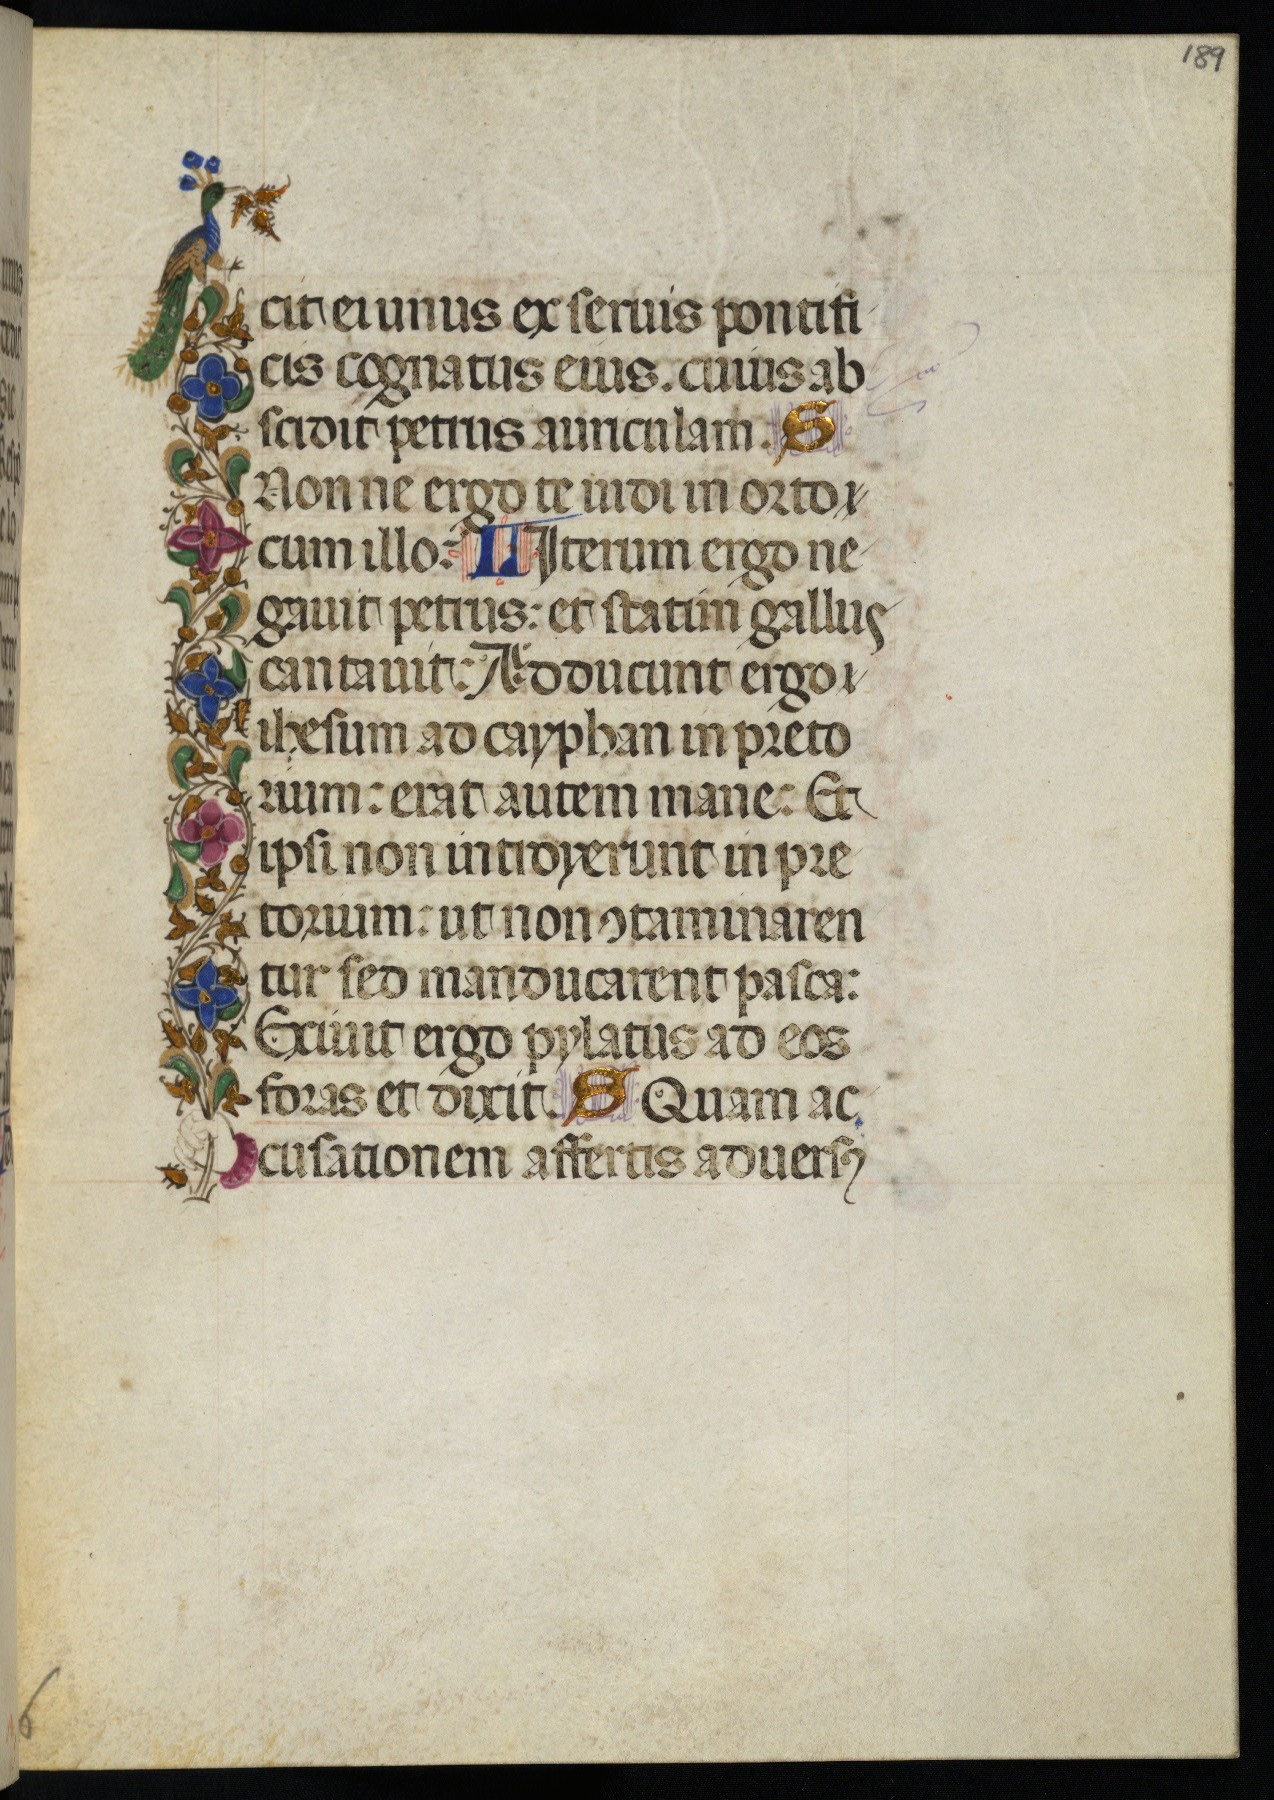 189
cit ei unus ex seruis pontifi
cis cognatus eius. cuius ab
scidit petrus auriculam. S
Non ne ergo te uidi in orto
cum illo: L Iterum ergo ne
gauit petrus: et statim gallus
cantauit: Adducunt ergo
ihesum ad cayphan in preto
rium: erat autem mane: Et
ipsi non introyerunt in pre
torium: ut non ꝯtaminaren
tur sed manducarent pasca:
Exiuit ergo pylatus ad eos
foras et dixit. S Quam ac
cusationem affertis aduersꝯ
6